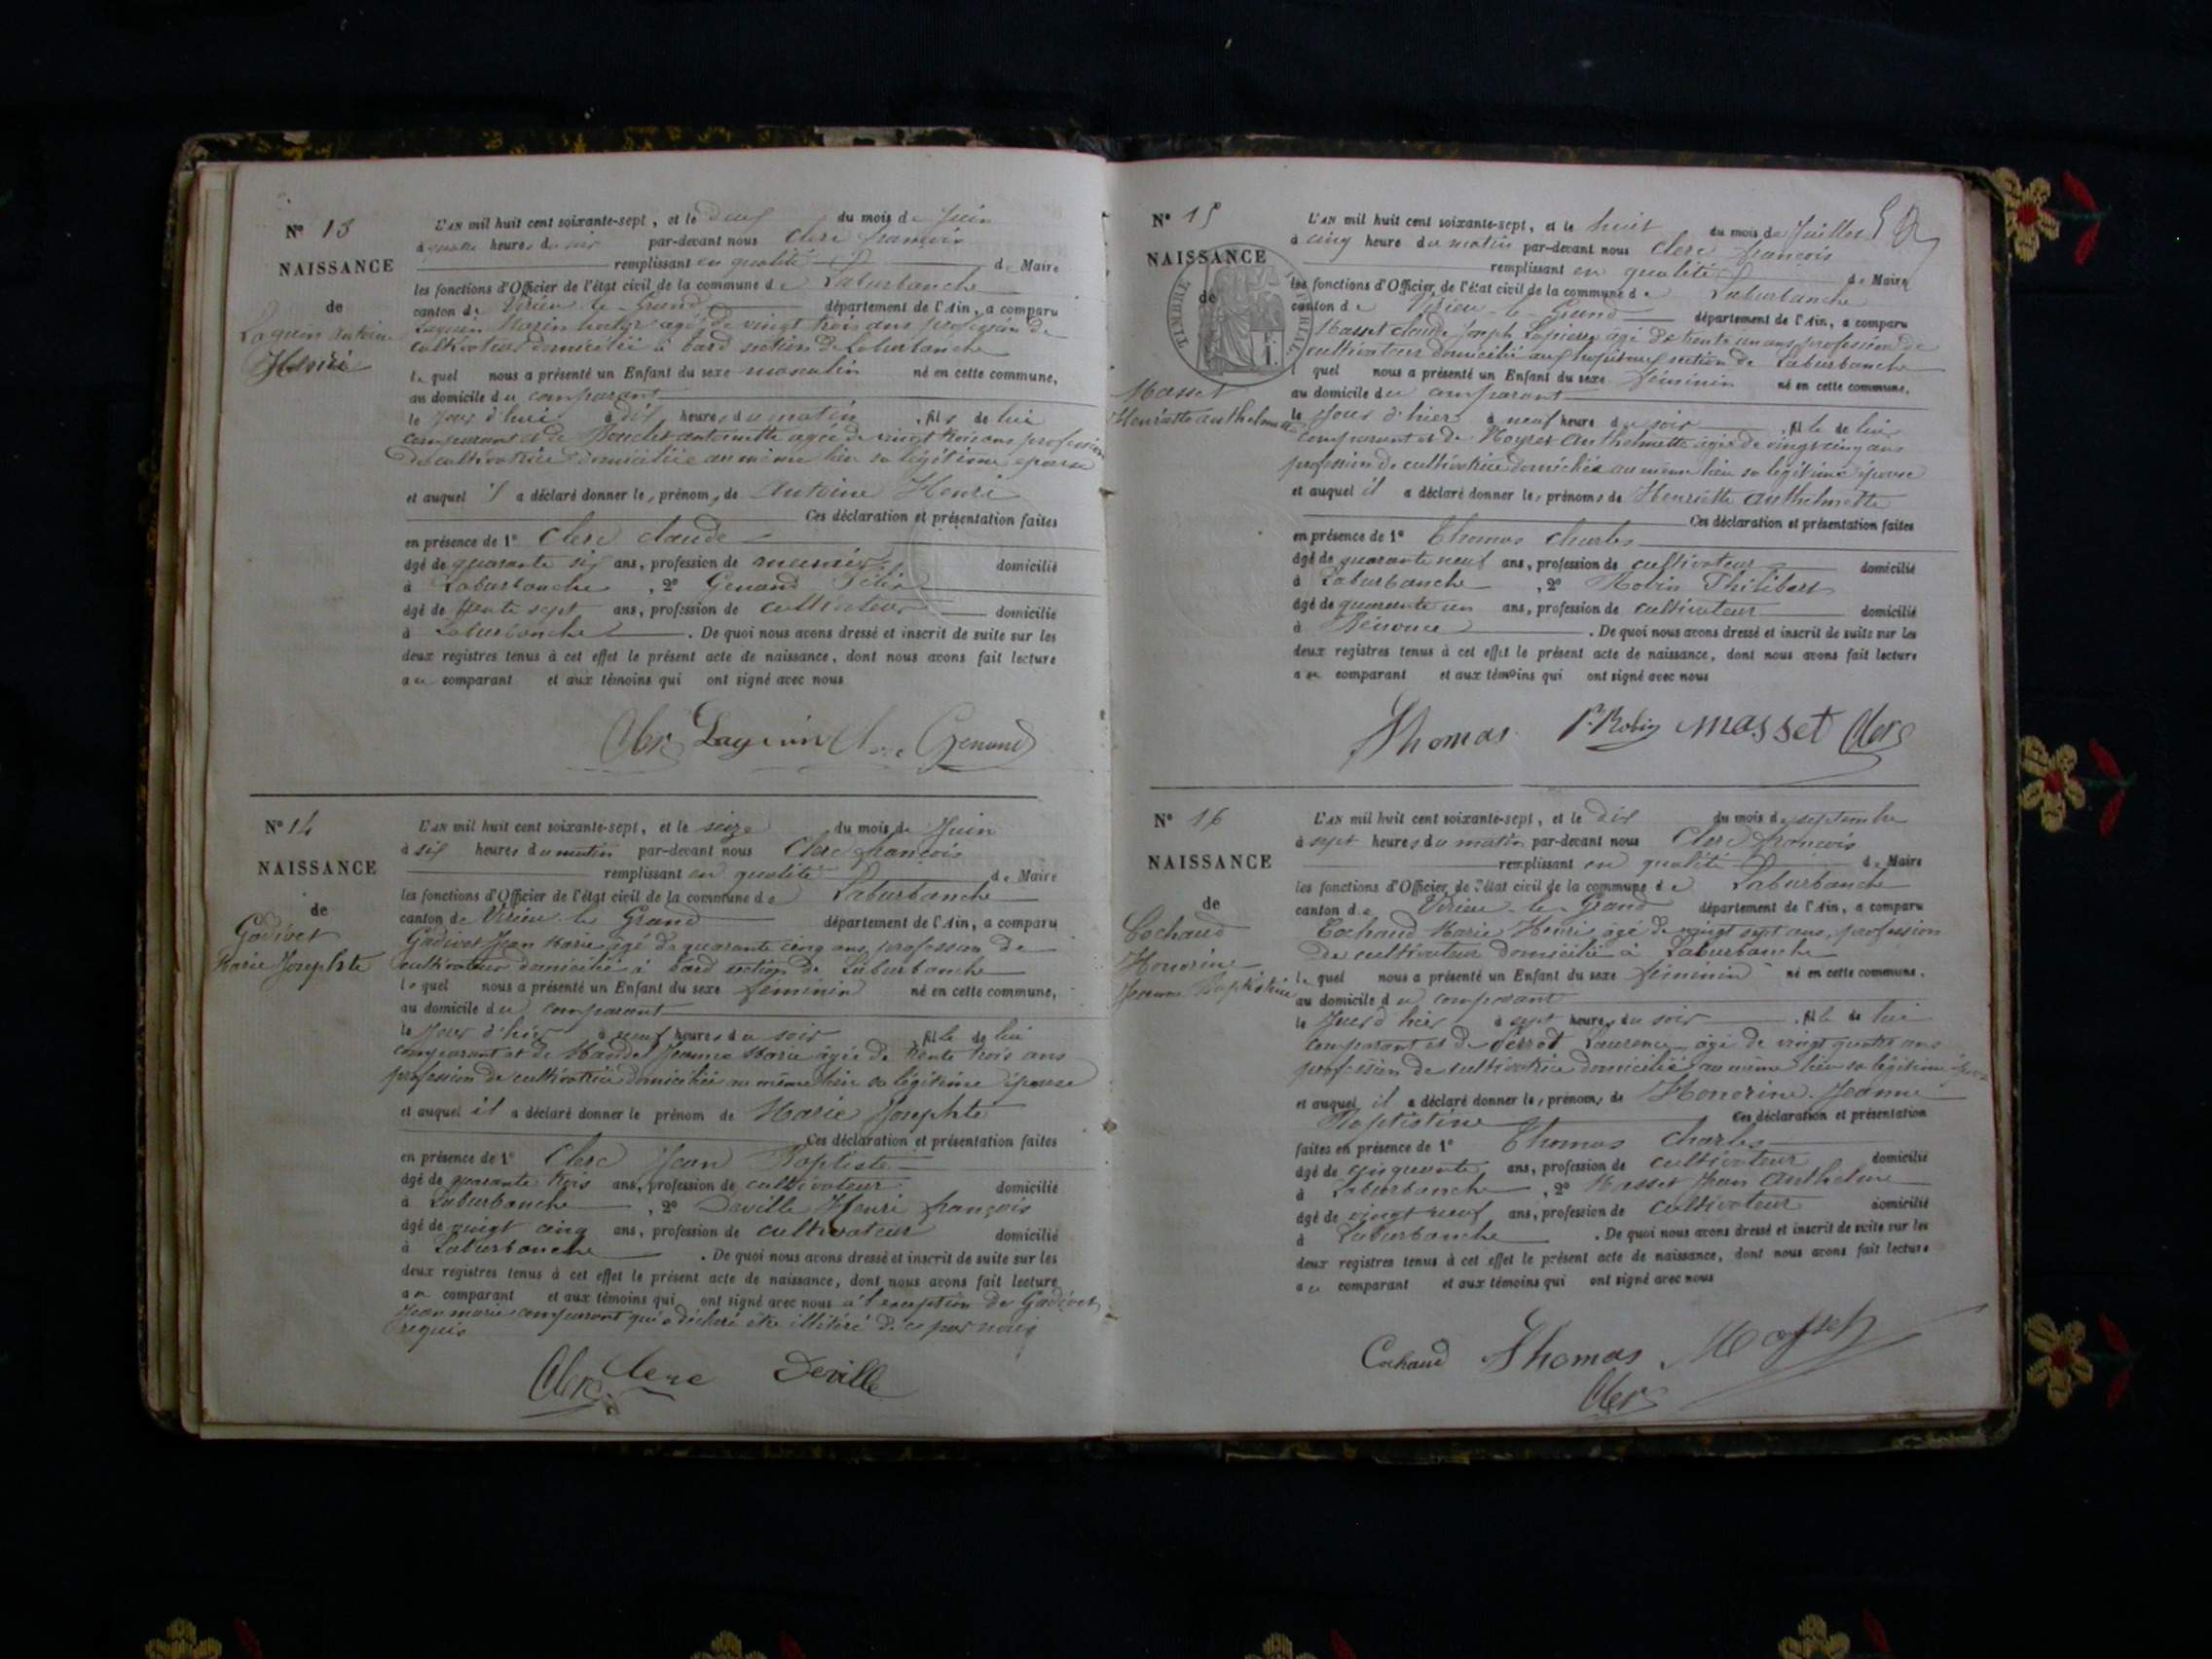 N° 13
NAISSANCE
de
Laguin Antoine
Henri
L'AN mil huit cent soixante-sept, et le du mois de Juin
à quatre heures du soir par-devant nous Clerc françois
remplissant en qualité de Maire
les fonctions d'Officier de l'état civil de la commune de Laburbanche
canton de Virieu-le-Grand département de l'Ain, a comparu
Laguin Marin agé de vingt trois ans profession de
cultivateur domicilié à bard section de Laburbanche
lequel nous a présenté un Enfant du sexe masculin né en cette commune,
au domicile du comparant
le Jour d'hui à dix heures du matin, fils de lui
comparant et de antoinette agée de vingt trois ans profession
de cultivatrice domiciliée au même lieu sa légitime épouse
et auquel il a déclaré donner les prénoms de Antoine Henri
Ces déclaration et présentation faites
en présence de 1° Clerc claude
âgé de quarante six ans, profession de domicilié
à Laburbanche, 2° Genand Félix
âgé de trente sept ans, profession de cultivateur domicilié
à Laburbanche. De quoi nous avons dressé et inscrit de suite sur les
deux registres tenus à cet effet le présent acte de naissance, dont nous avons fait lecture
au comparant et aux témoins qui ont signé avec nous
Clerc Laguin Clerc Genand
N° 14
NAISSANCE
de
Godivet
Marie Josephte
L'AN mil huit cent soixante-sept, et le seize du mois de Juin
à six heures du matin par-devant nous Clerc françois
remplissant en qualité de Maire
les fonctions d'Officier de l'état civil de la commune de Laburbanche
canton de Virieu-le-Grand département de l'Ain, a comparu
Godivet Jean Marie agé de quarante cinq ans, profession de
cultivateur domicilié à bard section de Laburbanche
lequel nous a présenté un Enfant du sexe féminin né en cette commune,
au domicile du comparant
le Jour d'hier à neuf heures du soir fille de lui
comparant et de Jeanne Marie âgée de trente trois ans
profession de cultivatrice domiciliée au même lieu sa légitime épouse
et auquel il a déclaré donner le prénom de Marie Josephte
Ces déclaration et présentation faites
en présence de 1° Clerc Jean Baptiste
âgé de quarante trois ans, profession de cultivateur domicilié
à Laburbanche, 2° Deville Henri françois
âgé de vingt cinq ans, profession de cultivateur domicilié
à Laburbanche. De quoi nous avons dressé et inscrit de suite sur les
deux registres tenus à cet effet le présent acte de naissance, dont nous avons fait lecture
au comparant et aux témoins qui ont signé avec nous à l'exception de Godivet
Jean marie comparant qui a déclaré être illitéré de ce par nous
requis
Clerc Clerc Deville
N° 15
NAISSANCE
de
TIMBRE IMPÉRIAL
Masset
Henriette anthelmette
L'AN mil huit cent soixante-sept, et le huit du mois de Juillet
à cinq heure du matin par-devant nous Clerc françois
remplissant en qualité de Maire
les fonctions d'Officier de l'état civil de la commune de Laburbanche
canton de Virieu-le-Grand département de l'Ain, a comparu
Masset claude Joseph agé de trente un ans profession de
cultivateur domicilié aux section de Laburbanche
lequel nous a présenté un Enfant du sexe féminin né en cette commune,
au domicile du comparant
le Jour d'hier à neuf heure du soir, fille de lui
comparant et de Anthelmette âgée de vingt cinq ans
profession de cultivatrice domiciliée au même lieu sa légitime épouse
et auquel il a déclaré donner les prénoms de Henriette anthelmette
Ces déclaration et présentation faites
en présence de 1° Thomas charles
âgé de quarante neuf ans, profession de cultivateur domicilié
à Laburbanche, 2° Robin Philibert
âgé de quarante un ans, profession de cultivateur domicilié
à. De quoi nous avons dressé et inscrit de suite sur les
deux registres tenus à cet effet le présent acte de naissance, dont nous avons fait lecture
au comparant et aux témoins qui ont signé avec nous
Thomas P. Robin Masset Clerc
N° 16
NAISSANCE
de
Cochaud
Honorine
Jeanne Baptistine
L'AN mil huit cent soixante-sept, et le dix du mois de septembre
à sept heures du matin par-devant nous Clerc françois
remplissant en qualité de Maire
les fonctions d'Officier de l'état civil de la commune de Laburbanche
canton de Virieu-le-Grand département de l'Ain, a comparu
Cochaud Marie Henri agé de vingt sept ans, profession
de cultivateur domicilié à Laburbanche
lequel nous a présenté un Enfant du sexe féminin né en cette commune.
au domicile du comparant
le Jour d'hier à sept heures du soir, fille de lui
comparant et de Perrot Laurence agé de vingt quatre ans
profession de cultivatrice domicilié au même lieu sa légitime épouse
et auquel il a déclaré donner les prénoms de Honorine Jeanne
Baptistine Ces déclaration et présentation
faites en présence de 1° Thomas Charles
âgé de cinquante ans, profession de cultivateur domicilié
à Laburbanche, 2° Masset Jean Anthelme
âgé de vingt neuf ans, profession de cultivateur domicilié
à Laburbanche. De quoi nous avons dressé et inscrit de suite sur les
deux registres tenus à cet effet le présent acte de naissance, dont nous avons fait lecture
au comparant et aux témoins qui ont signé avec nous
Cochaud Thomas Masset
Clerc